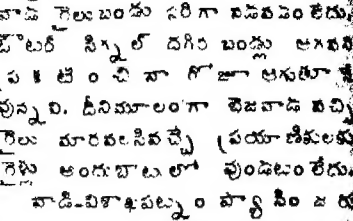 వాడ రైలు బండు సరిగా నడవడం లేదు.
ఔటర్ సిగ్నల్ దగ్గిర బండ్లు ఆగవని
ప్రకటించినా రోజూ ఆగుతూనే
వున్నవి. దీనిమూలంగా బెజవాడ వచ్చి
రైలు మారవలసివచ్చే ప్రయాణికులకు
రైళ్లు అందుబాటులో వుండటం లేదు.
వాడ-విశాఖపట్నం ప్యాసింజరు